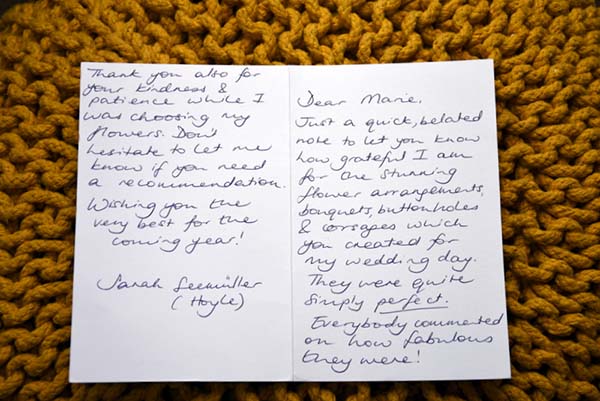 Dear Marie,
Just a quick, belated
note to let you know
how grateful I am
for the stunning
flower arrangements,
bouquets, buttonholes
& corsages which
you created for
my wedding day.
They were quite
simply perfect.
Everybody commented
on how fabulous
they were!
Thank you also for
your kindness &
patience while I
was choosing my
flowers. Don't
hesitate to let me
know if you need
a recommendation.
Wishing you the
very best for the
coming year!
Sarah Seemüller
(Hoyle)